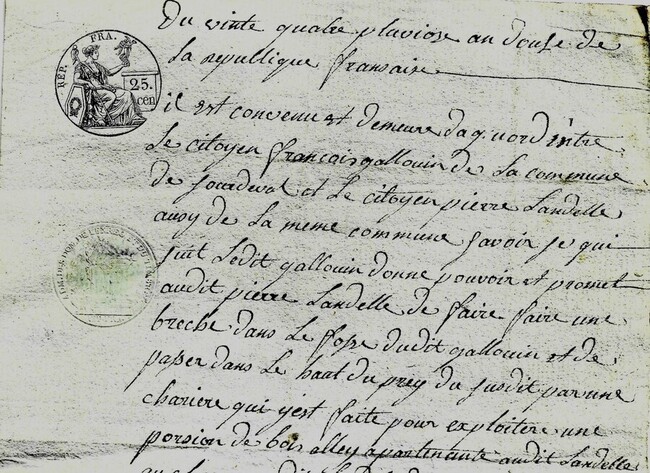 Du vinte quatre pluviose an douse de
la republique fransaise
RÉP. FRA.
25.
cen
il est convenu et demeure daq'uord entre
Le citoyen francois gallouin de la commune
de sourdeval et le citoyen pierre Landelle
aussy de la meme commune savoir se qui
suit Ledit gallouin donne pouvoir et promet
audit pierre Landelle de faire faire une
breche dans le fosse dudit gallouin et de
passer dans le haut du prey du susdit par une
chariere qui s'est faite pour exploitere une
porsion de bois alley apartenante audit Landelle